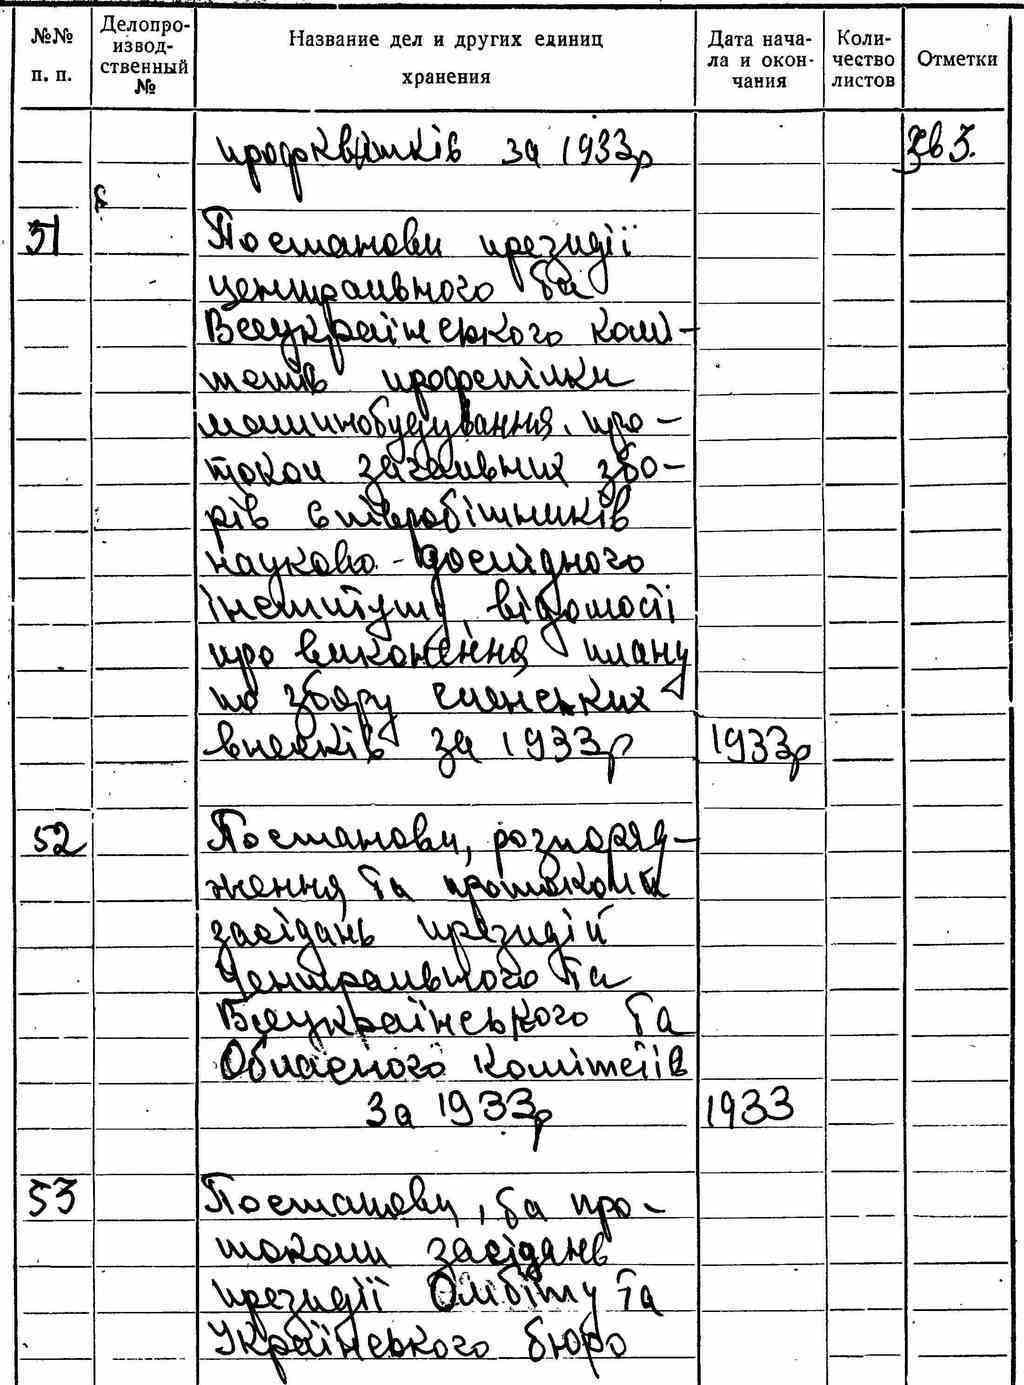 №№ п. п.
Делопро-
извод-
ственный
№
Название дел и других единиц
хранения
Дата нача-
ла и окон-
чания
Коли-
чество
листов
Отметки
профквитків за 1933р
51 Постанови президії
центрального та
Всеукраїнського комі-
тетів профспілки
машинобудування, про-
токол загальних збо-
рів співробітників
науково-дослідного
інституту, відомості
про виконання плану
по збору членських
внесків за 1933р 1933р
52 Постанови, розпоряд-
ження та протоколи
засідань президій
Центрального та
Всеукраїнського та
Обласного комітетів
за 1933р 1933
53 Постанови, та про-
токоли засідань
президії
та
Українського бюро